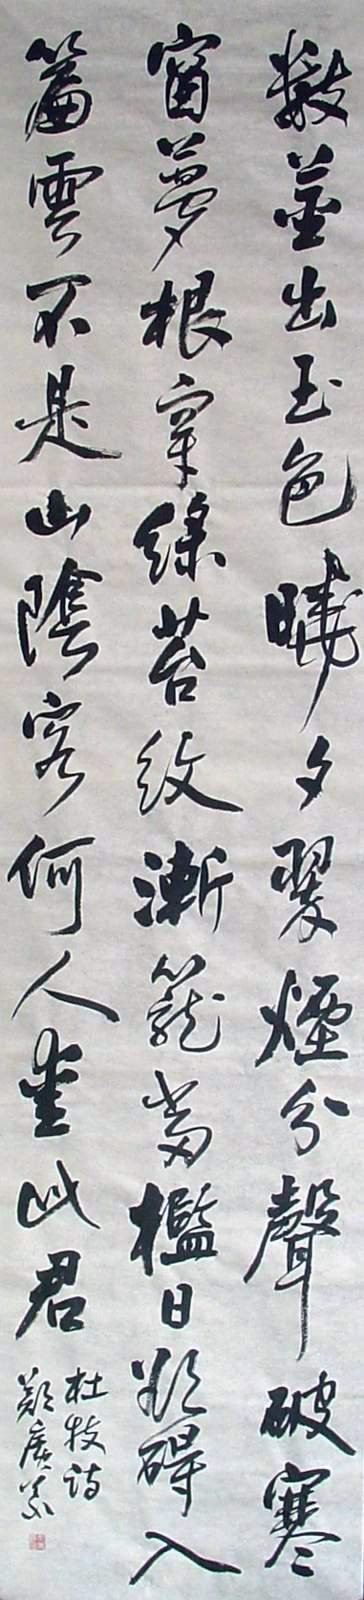 數莖出玉色曉夕翠煙分聲破寒
窗夢根穿綠苔紋漸籠當檻日欲礙入
簾雲不是山陰客何人愛此君
杜牧詩
鄭廣